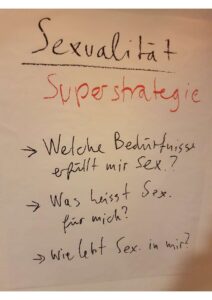 Sexualität
Superstrategie
→ Welche Bedürfnisse
erfüllt mir Sex.?
→ Was heisst Sex.
für mich?
→ Wie lebt Sex. in mir?